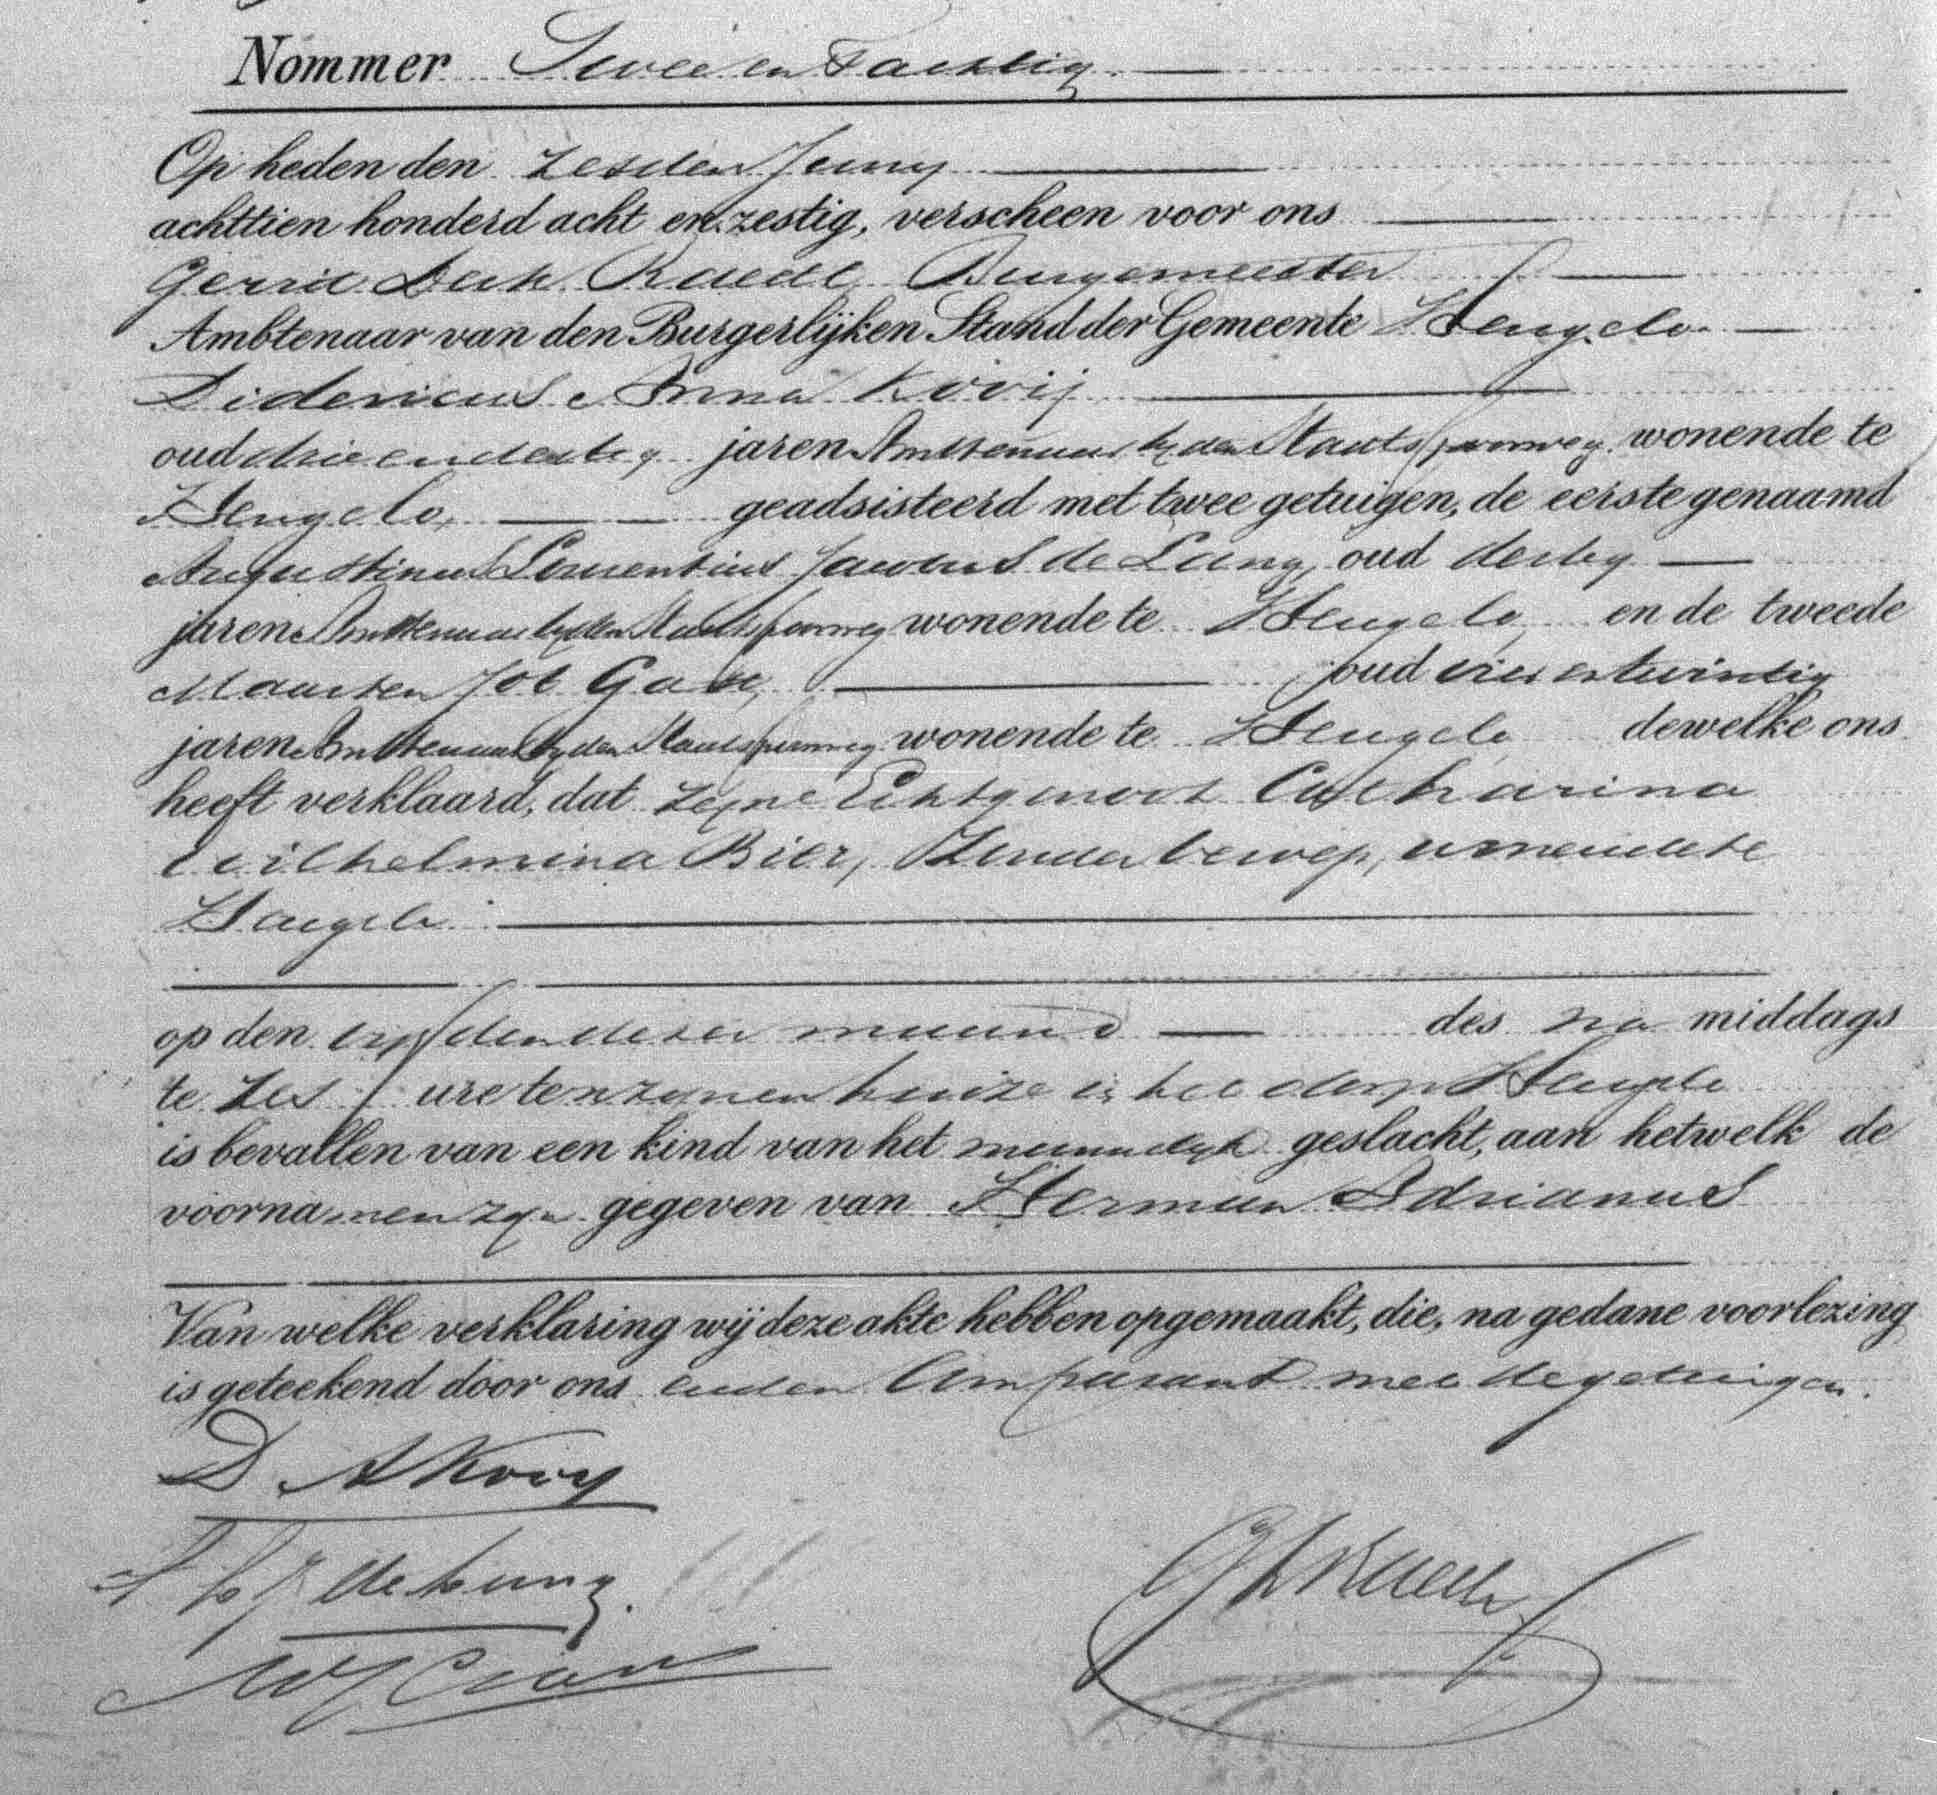 Nommer Twee en Tachtig
Op heden den zesden Juny
achttien honderd acht en zestig, verscheen voor ons
Gerrit Derk Raedt Burgemeester
Ambtenaar van den Burgerlijken Stand der Gemeente Hengelo
Didericus Anna Kooij
oud drie en dertig jaren Ambtenaar by den Staatsspoorweg wonende te
Hengelo, geadsisteerd met twee getuigen, de eerste genaamd
Augustinus Laurentius Jacobus de Lang, oud dertig
jaren Ambtenaar by den Staatsspoorweg wonende te Hengelo, en de tweede
Maarten Job oud vier en twintig
jaren Ambtenaar by den Staatsspoorweg wonende te Hengelo dewelke ons
heeft verklaard, dat zijne Echtgenoot Catharina
Wilhelmina Bier, Zonder beroep, wonende te
Hengelo
op den vyfden dezer maand des na middags
te zes ure ten zynen huize in het dorp Hengelo
is bevallen van een kind van het mannelyk geslacht, aan hetwelk de
voornamen zyn gegeven van Herman Adrianus
Van welke verklaring wij deze akte hebben opgemaakt, die, na gedane voorlezing
is geteekend door ons en den Comparant met de getuigen.
D A Kooy
A L J de Lang.
GDRaedt